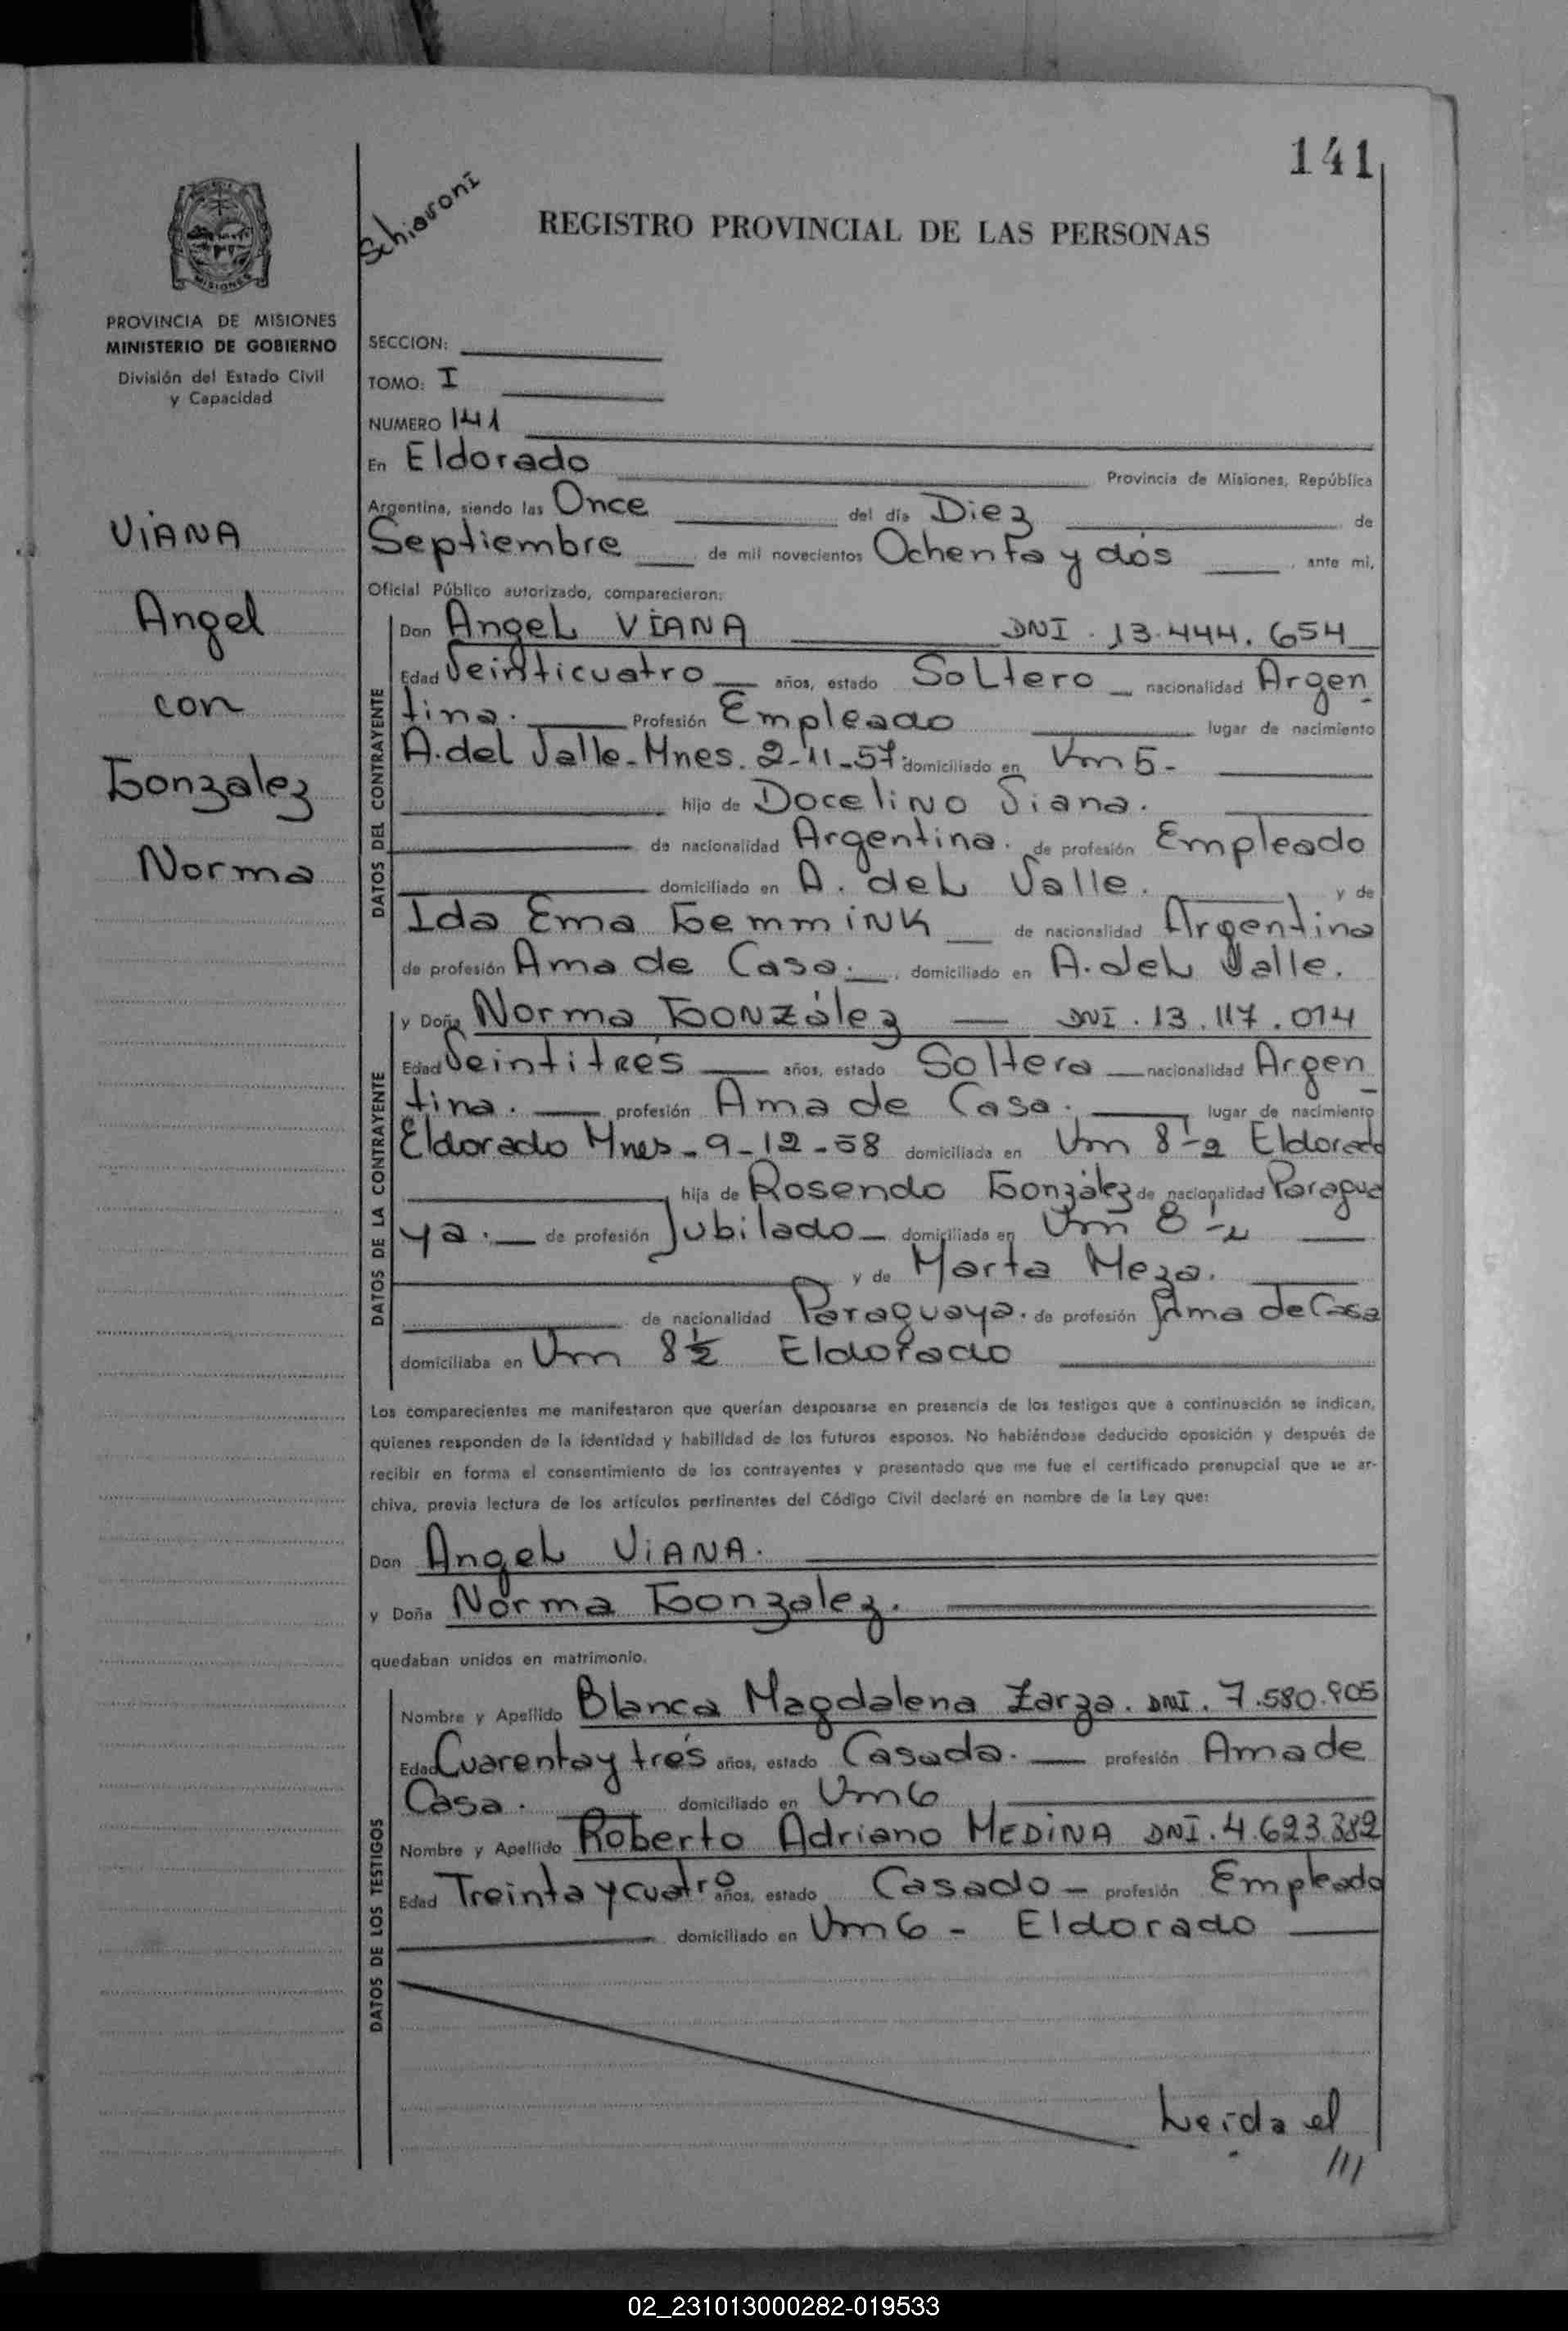 141
Schiavoni
REGISTRO PROVINCIAL DE LAS PERSONAS
MISIONES
PROVINCIA DE MISIONES
MINISTERIO DE GOBIERNO
División del Estado Civil
y Capacidad
VIANA
Angel
con
Gonzalez
Norma
SECCION:
TOMO: I
NUMERO 141
En Eldorado Provincia de Misiones, República
Argentina, siendo las Once del día Diez de
Septiembre de mil novecientos Ochenta y dós ante mi,
Oficial Público autorizado, comparecieron:
DATOS DEL CONTRAYENTE
Don Angel VIANA DNI. 13.444.654
Edad Veinticuatro años, estado Soltero nacionalidad Argen
tina. Profesión Empleado lugar de nacimiento
A. del Valle-Mnes. 2-11-57 domiciliado en Km 5-
hijo de Docelino Viana.
de nacionalidad Argentina. de profesión Empleado
domiciliado en A. del Valle. y de
Ida Ema Gemmink de nacionalidad Argentina
de profesión Ama de Casa. domiciliado en A. del Valle.
DATOS DE LA CONTRAYENTE
y Doña Norma González DNI. 13.117.014
Edad Veintitrés años, estado Soltera nacionalidad Argen
tina. profesión Ama de Casa. lugar de nacimiento
Eldorado Mnes-9-12-58 domiciliada en Km 8½ Eldorado
hija de Rosendo González de nacionalidad Paragua
ya. de profesión Jubilado domiciliada en Km 8½
y de Marta Meza.
de nacionalidad Paraguaya. de profesión Ama de Casa
domiciliaba en Km 8½ Eldorado
Los comparecientes me manifestaron que querían desposarse en presencia de los testigos que a continuación se indican,
quienes responden de la identidad y habilidad de los futuros esposos. No habiéndose deducido oposición y después de
recibir en forma el consentimiento de los contrayentes y presentado que me fue el certificado prenupcial que se ar-
chiva, previa lectura de los artículos pertinentes del Código Civil declaré en nombre de la Ley que:
Don Angel VIANA.
y Doña Norma Gonzalez.
quedaban unidos en matrimonio.
DATOS DE LOS TESTIGOS
Nombre y Apellido Blanca Magdalena Zarza. DNI. 7.580.905
Edad Cuarenta y trés años, estado Casada. profesión Ama de
Casa. domiciliado en Km 6
Nombre y Apellido Roberto Adriano MEDINA DNI. 4.623.382
Edad Treinta y cuatro años, estado Casado - profesión Empleado
domiciliado en Km 6 - Eldorado
Leída el
///
02_231013000282-019533